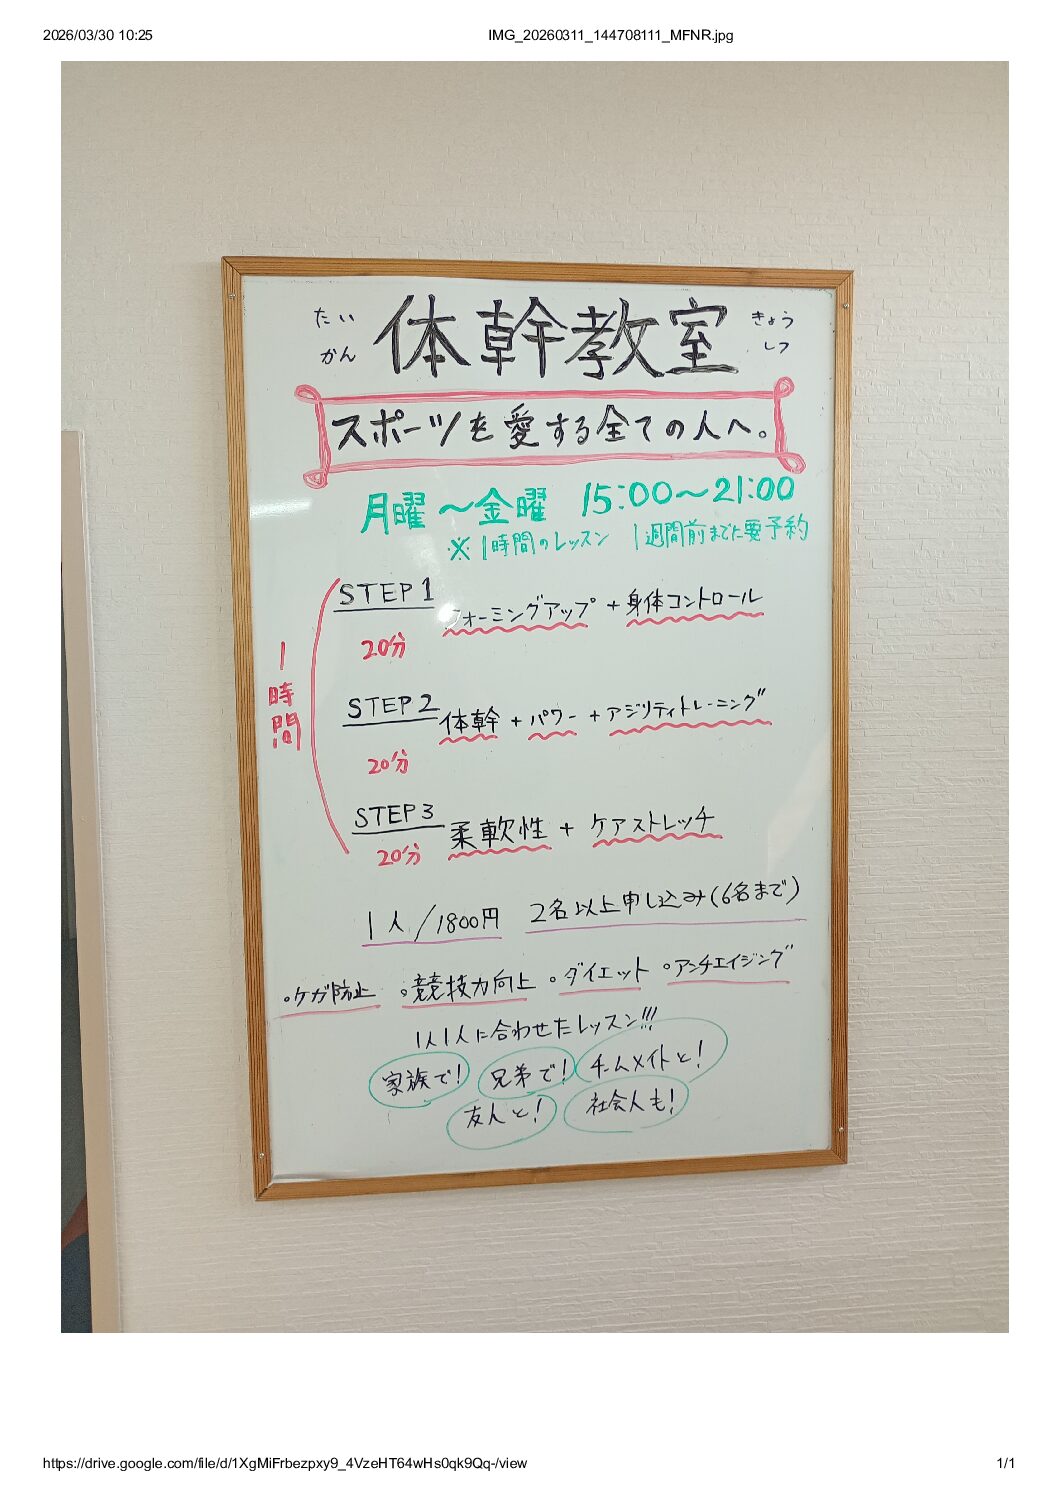 2026/03/30 10:25
IMG_20260311_144708111_MFNR.jpg
たいかん
体幹教室
きょうしつ
スポーツを愛する全ての人へ。
月曜〜金曜 15:00〜21:00
※1時間のレッスン 1週間前までに要予約
1時間
STEP1
ウォーミングアップ + 身体コントロール
20分
STEP2
体幹 + パワー + アジリティトレーニング
20分
STEP3
柔軟性 + ケアストレッチ
20分
1人/1800円 2名以上申し込み(6名まで)
。ケガ防止 。競技力向上 。ダイエット 。アンチエイジング
1人1人に合わせたレッスン!!!
家族で! 兄弟で! チームメイトと!
友人と! 社会人も!
https://drive.google.com/file/d/1XgMiFrbezpxy9_4VzeHT64wHs0qk9Qq-/view
1/1